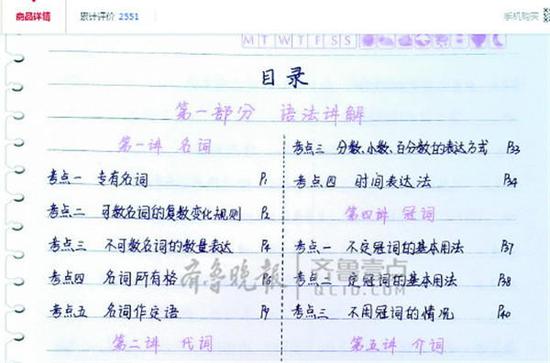 商品详情 累计评价 2551 手机购买
M T W T F S S
目录
第一部分 语法讲解
第一讲 名词
考点一 专有名词 P1
考点二 可数名词的复数变化规则 P2
考点三 不可数名词的数量表达 P4
考点四 名词所有格 P5
考点五 名词作定语 P9
第二讲 代词
考点三 分数、小数、百分数的表达方式 P33
考点四 时间表达法 P34
第四讲 冠词
考点一 不定冠词的基本用法 P37
考点二 定冠词的基本用法 P38
考点三 不用冠词的情况 P40
第五讲 介词
齐鲁晚报 齐鲁壹点
QLYD.COM